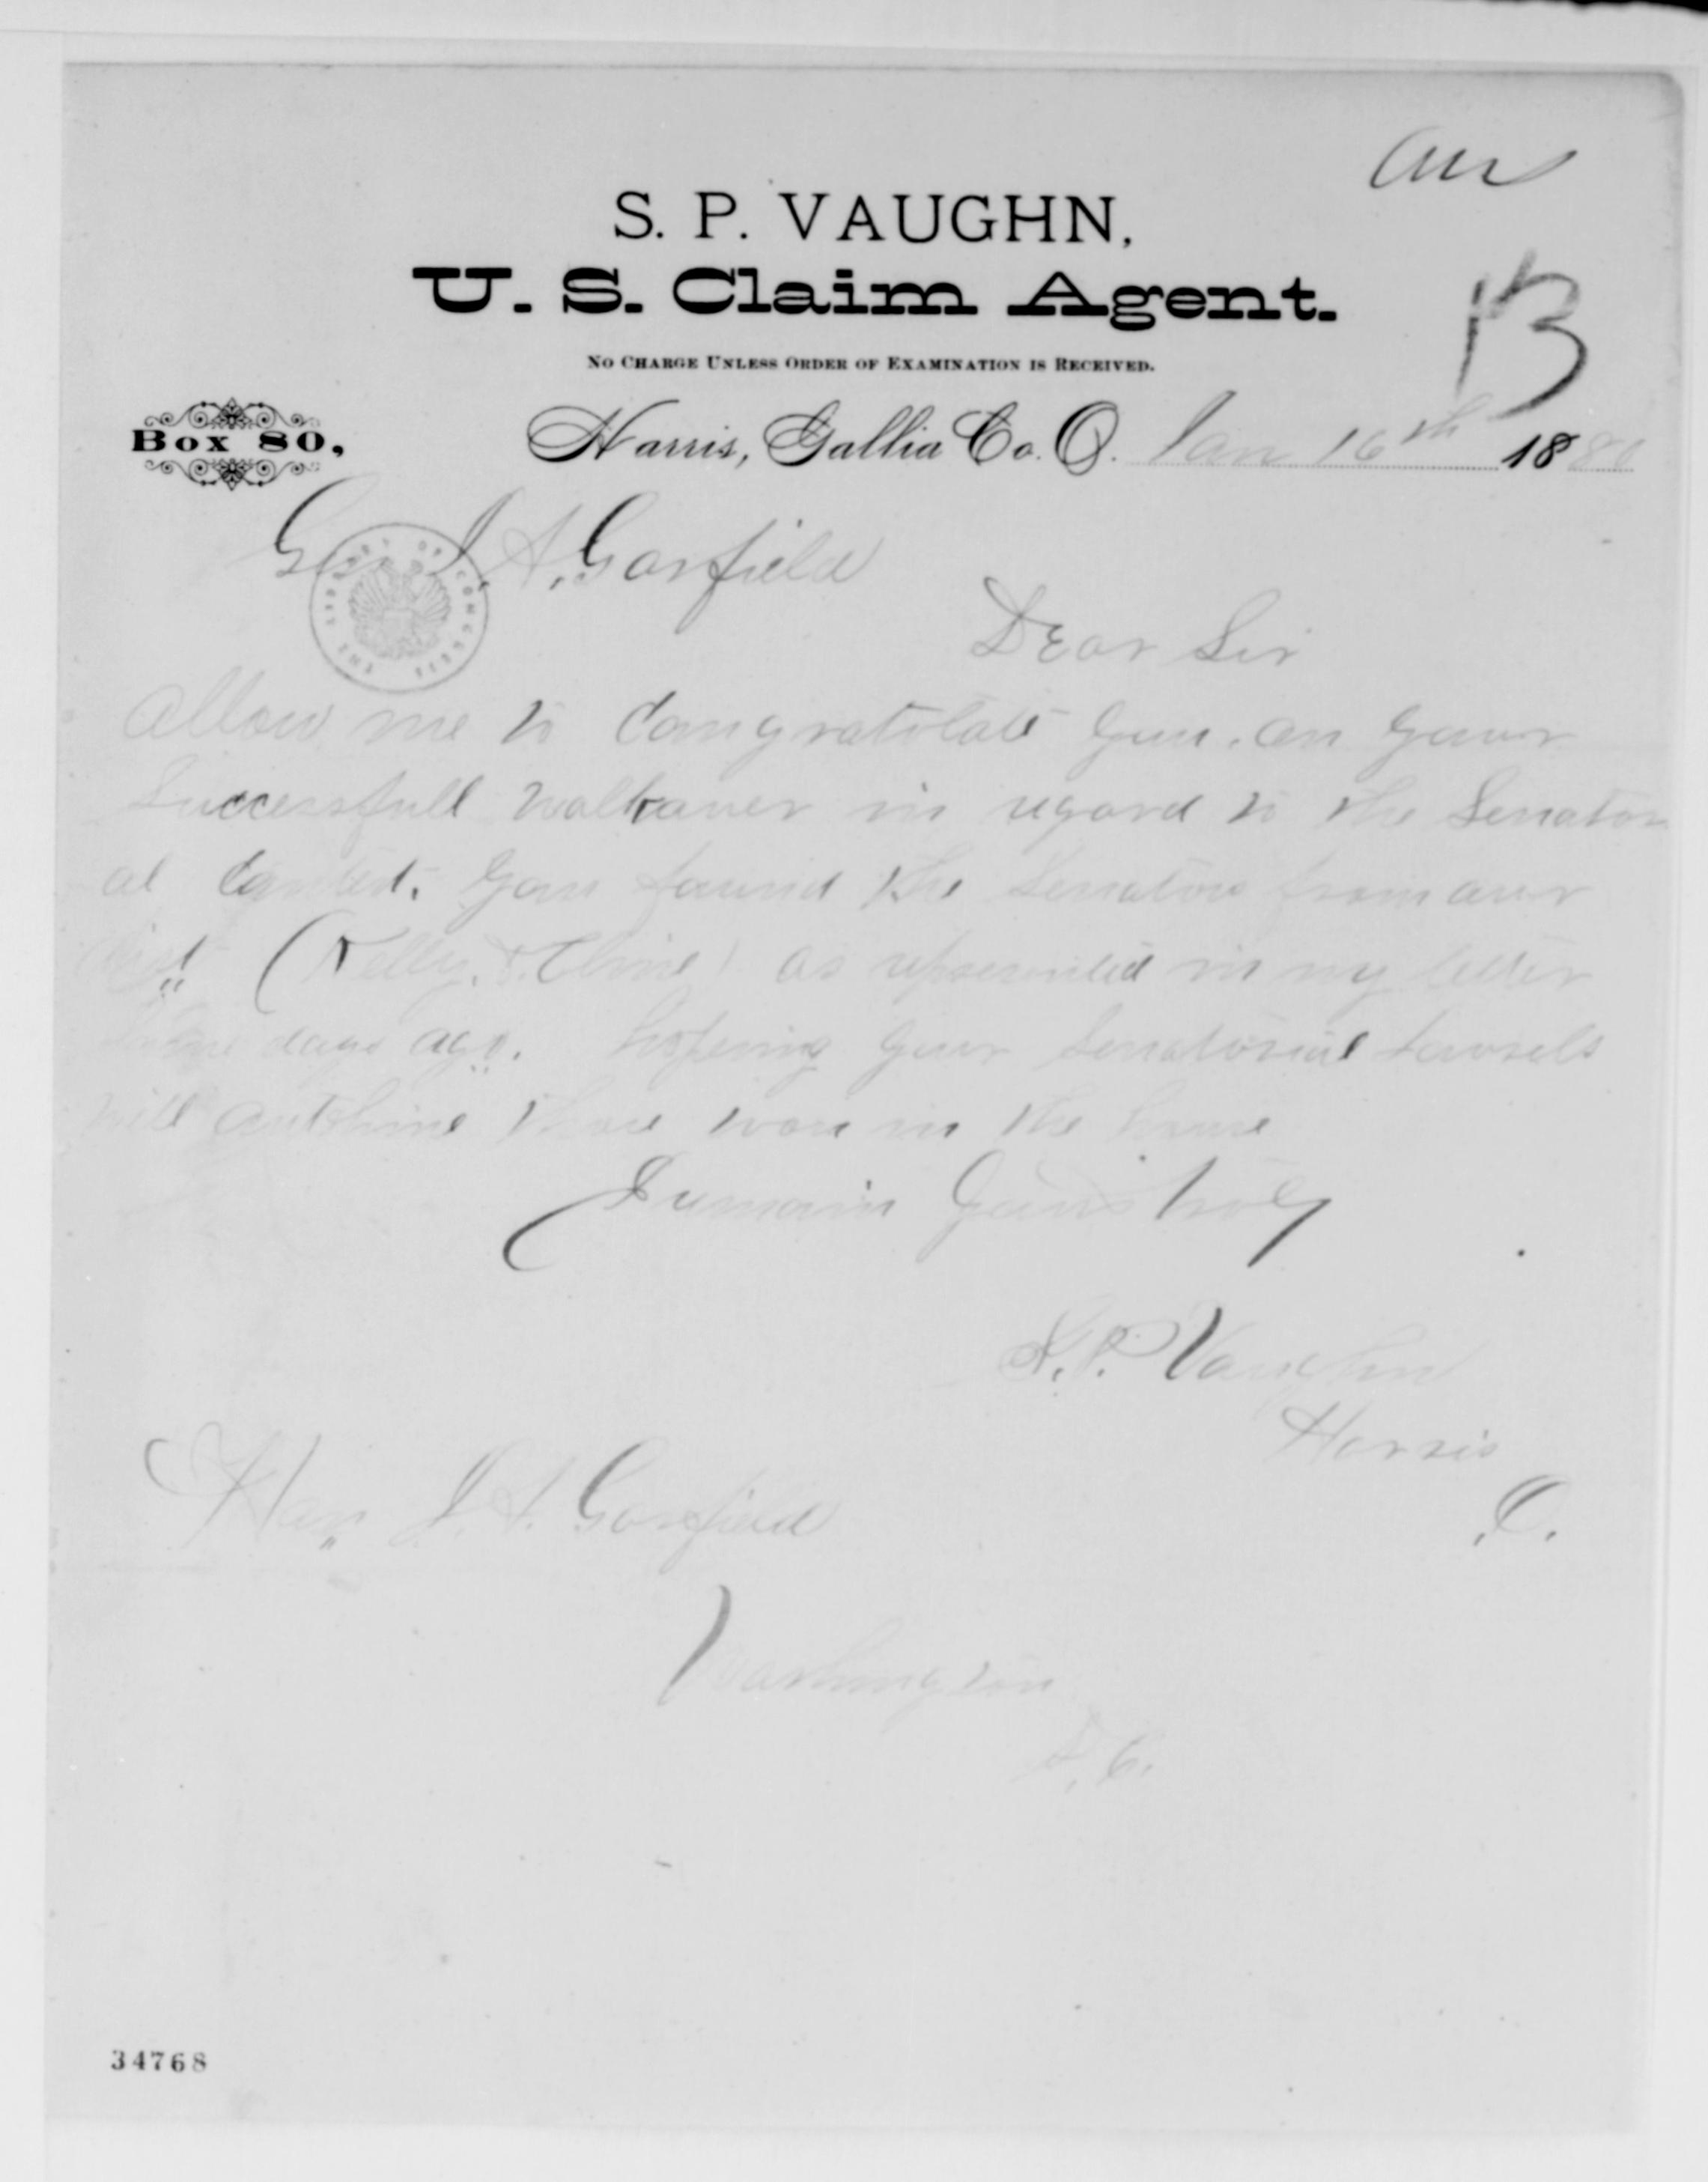 Ans
S. P. VAUGHN,
U. S. Claim Agent.
B
NO CHARGE UNLESS ORDER OF EXAMINATION IS RECEIVED.
Box 80,
Harris, Gallia Co. O. Jan 16th 1880
Gen J. A. Garfield
THE LIBRARY OF CONGRESS
Dear Sir
Allow me to Congratulate you, on your
Successfull walkover in regard to the Senatori
al Contest. you found the Senators from our
Dist (Kelly & Cline) as represented in my letter
some days ago. hopeing your Senatorial Laurels
will outshine those won in the house
I remain yours truly
S. P. Vaughn
Harris
O.
Hon J. A. Garfield
Washington
D. C.
34768